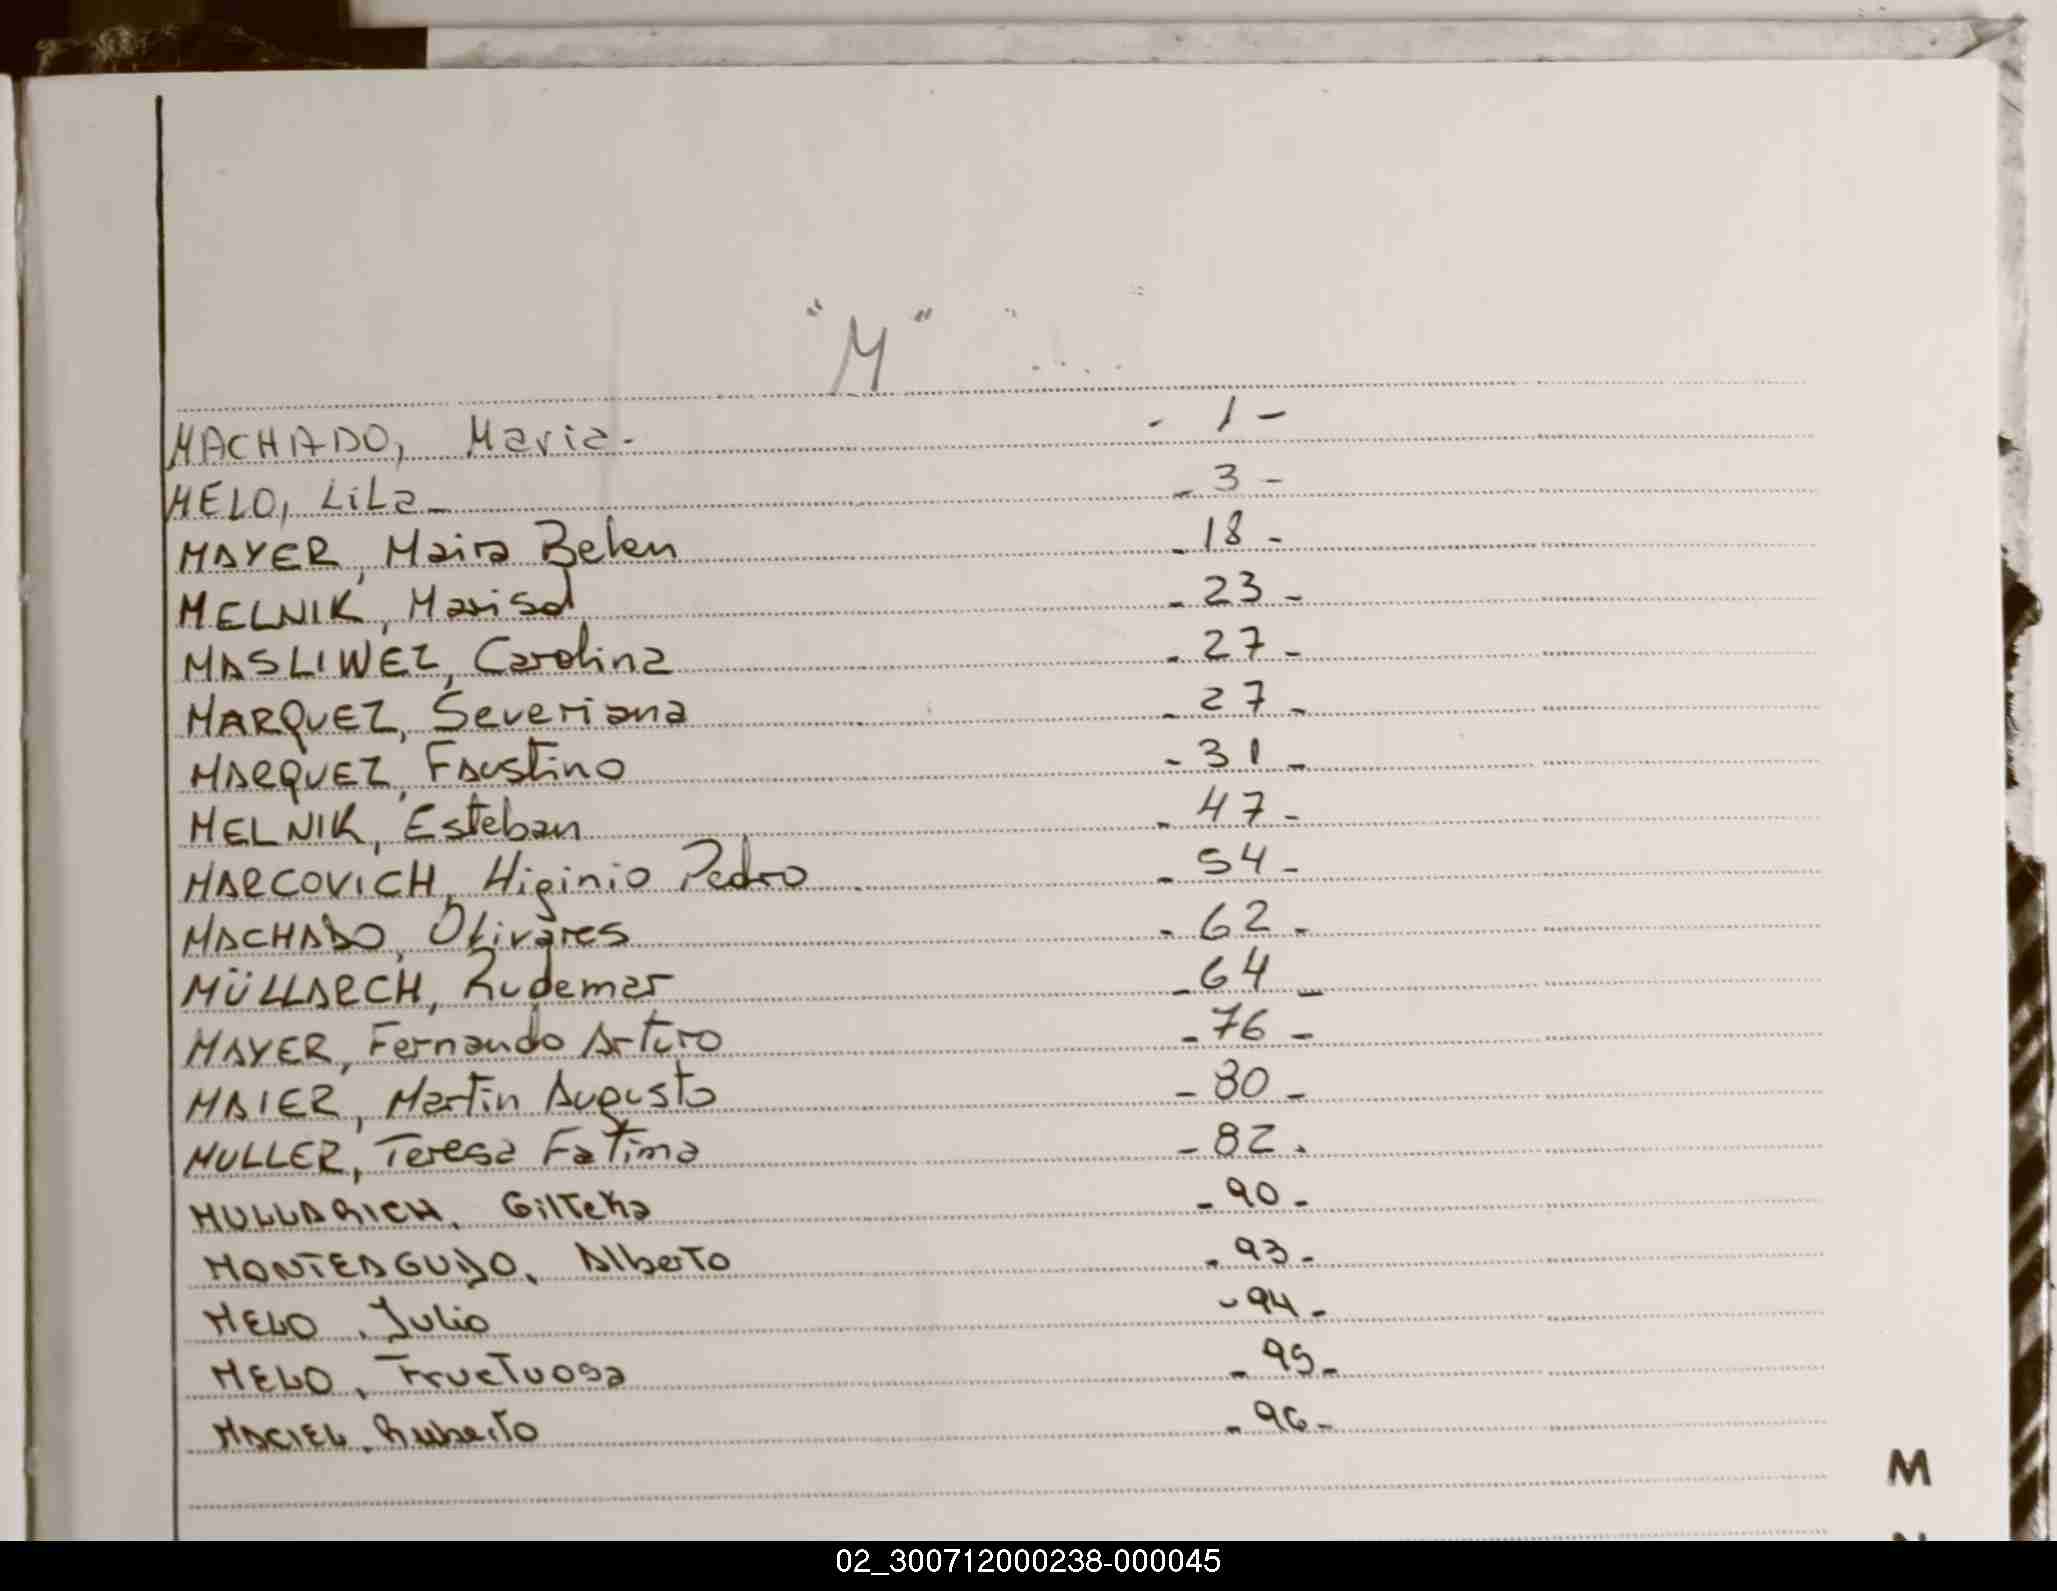 "M"
MACHADO, Maria. - 1 -
MELO, Lila - 3 -
MAYER, Maira Belen - 18 -
MELNIK, Marisol - 23 -
MASLIWEZ, Carolina - 27 -
MARQUEZ, Severiana - 27 -
MARQUEZ, Faustino - 31 -
MELNIK, Esteban - 47 -
MARCOVICH, Higinio Pedro - 54 -
MACHADO, Olivares - 62 -
MÜLLARCH, Rudemar - 64 -
MAYER, Fernando Arturo - 76 -
MAIER, Martin Augusto - 80 -
MULLER, Teresa Fatima - 82 .
MULLARICH, - 90 -
MONTEAGUDO, Alberto - 93 -
MELO, Julio - 94 -
MELO, Fructuosa - 95 -
MACIEL, Ruberto - 96 -
M
02_300712000238-000045